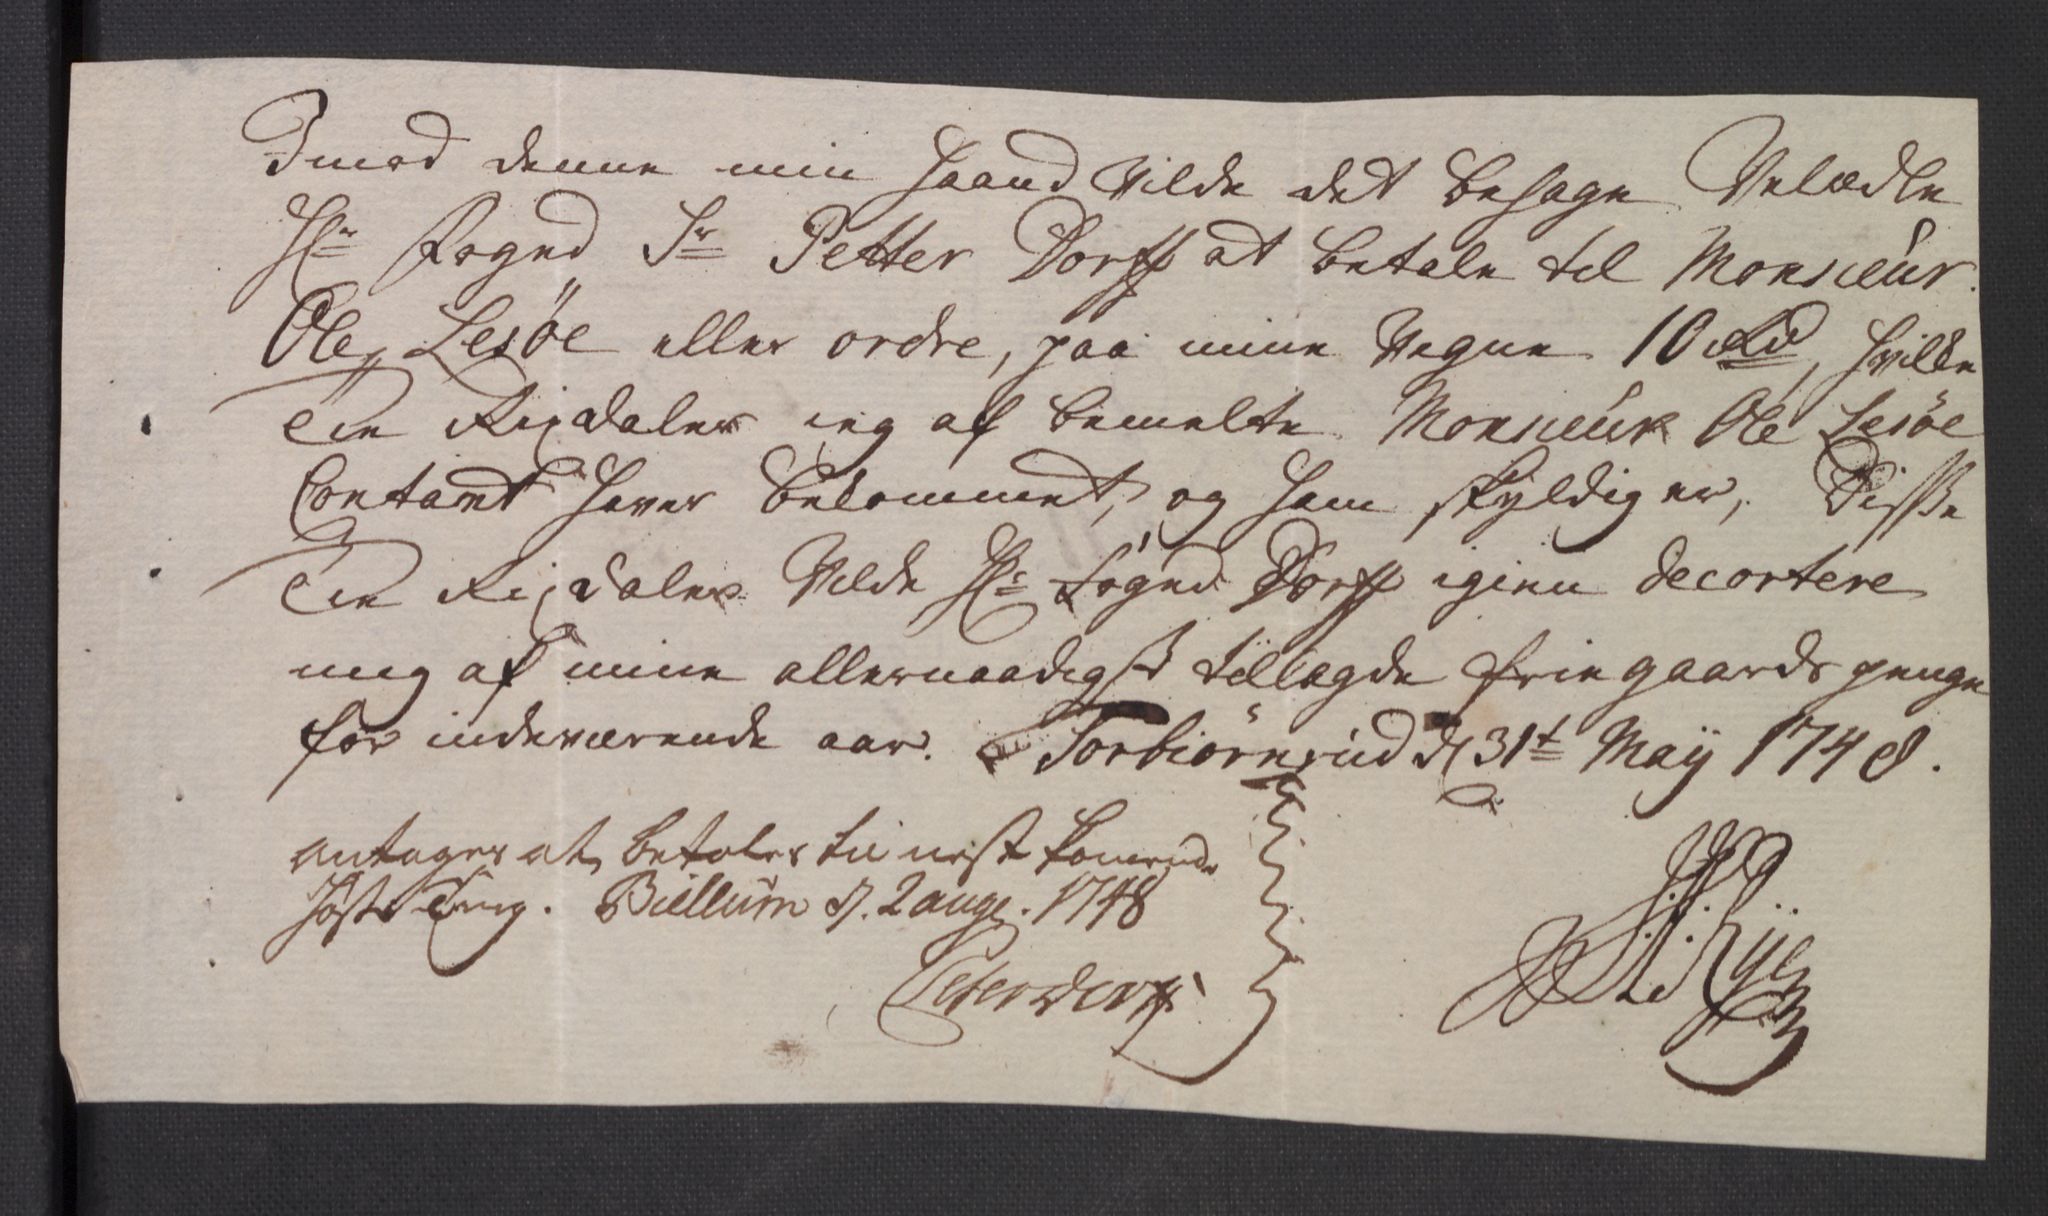 Imod denne min Haand Vilde det behage Velædle
Hr Foged Sr Petter Dorff at betale til Monsieur
Ole Lesöe eller ordre, paa mine Vegne 10 Rd, hvilke
Tie Rixdaler ieg af bemelte Monsieur Ole Lesöe
Contant haver bekommet, og ham skyldig er, Disse
Tie Rixdaler Vilde Hr Foged Dorff igien decortere
mig af mine allernaadigst tillagde friegaards penge
for indeværende aar. Torbiörnrud d 31t Maij 1748.
antages at betales til nest komende
Höste Ting. Biellum d. 2 aug. 1748
Peter Dorff
Rÿe